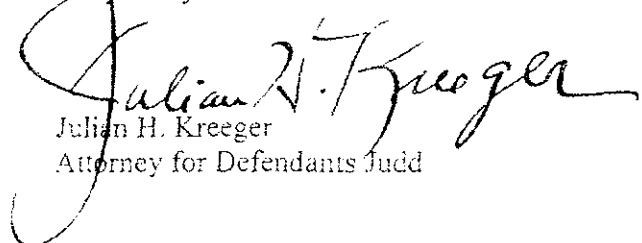 Julian H. Kreeger
Julian H. Kreeger
Attorney for Defendants Judd